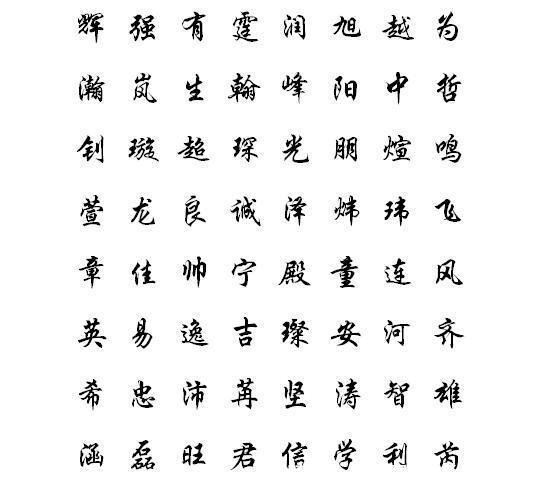 辉 强 有 霆 润 旭 越 为
瀚 岚 生 翰 峰 阳 中 哲
钊 璇 超 琛 光 朋 煊 鸣
萱 龙 良 诚 泽 炜 玮 飞
章 佳 帅 宁 殿 童 连 风
英 易 逸 吉 璨 安 河 齐
希 忠 沛 苒 坚 涛 智 雄
涵 磊 旺 君 信 学 利 芮